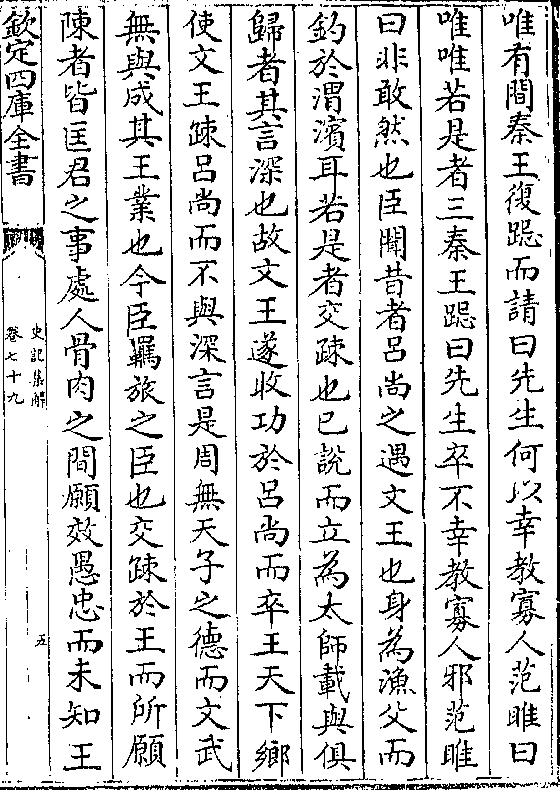 唯有間秦王復跽而請曰先生何以幸教寡人范雎曰
唯唯若是者三秦王跽曰先生卒不幸教寡人邪范雎
曰非敢然也臣聞昔者吕尚之遇文王也身為漁父而
釣於渭濵耳若是者交疎也已說而立為太師載與俱
歸者其言深也故文王遂收功於吕尚而卒王天下鄉
使文王疎吕尚而不與深言是周無天子之德而文武
無與成其王業也今臣羈旅之臣也交疎於王而所願
陳者皆匡君之事處人骨肉之間願效愚忠而未知王
欽定四庫全書
史記集解
卷七十九
五